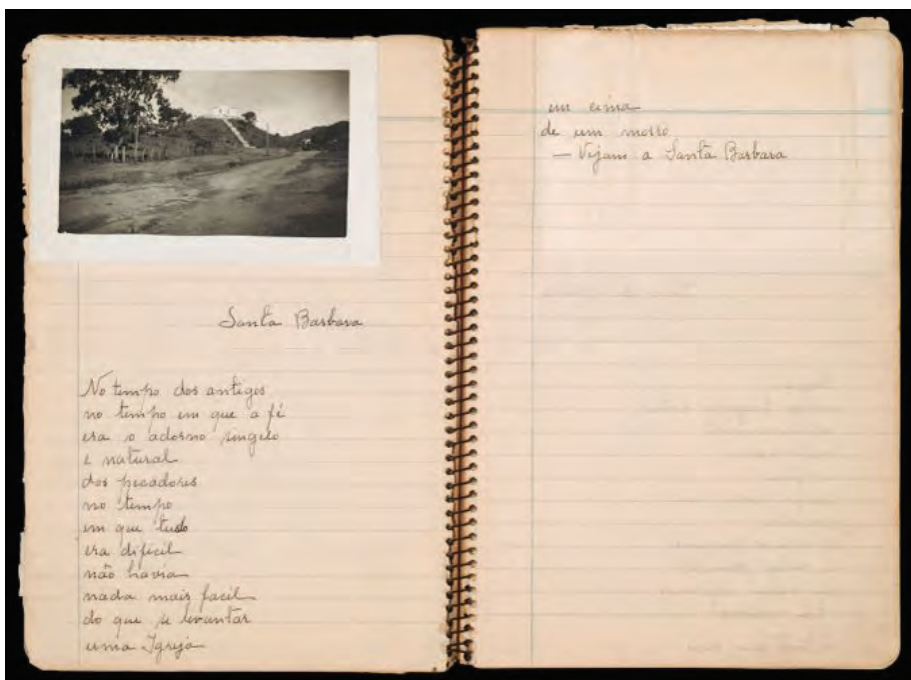 Santa Barbara
No tempo dos antigos
no tempo em que a fé
era o adorno singelo
e natural
dos pecadores
no tempo
em que tudo
era dificil
não havia
nada mais facil
do que se levantar
uma Igreja
em cima
de um morro
— Vejam a Santa Barbara